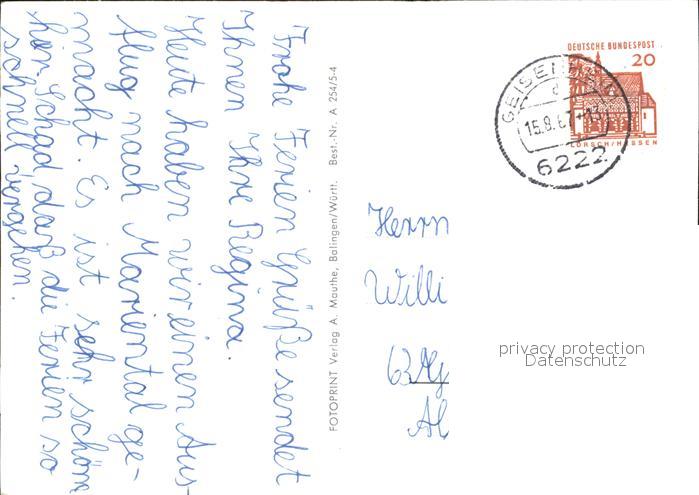 Frohe Ferien Grüße sendet
Ihnen Ihre Regina.
Heute haben wir einen Aus-
flug nach Mariental ge-
macht. Es ist sehr schön
hier. Schad daß die Ferien so
schnell vergehen.
FOTOPRINT Verlag A. Mauthe, Balingen/Württ. Best.-Nr. A 254/5-4
DEUTSCHE BUNDESPOST
20
LORSCH/HESSEN
15.8.67
6222
Herrn
Willi
privacy protection
Datenschutz